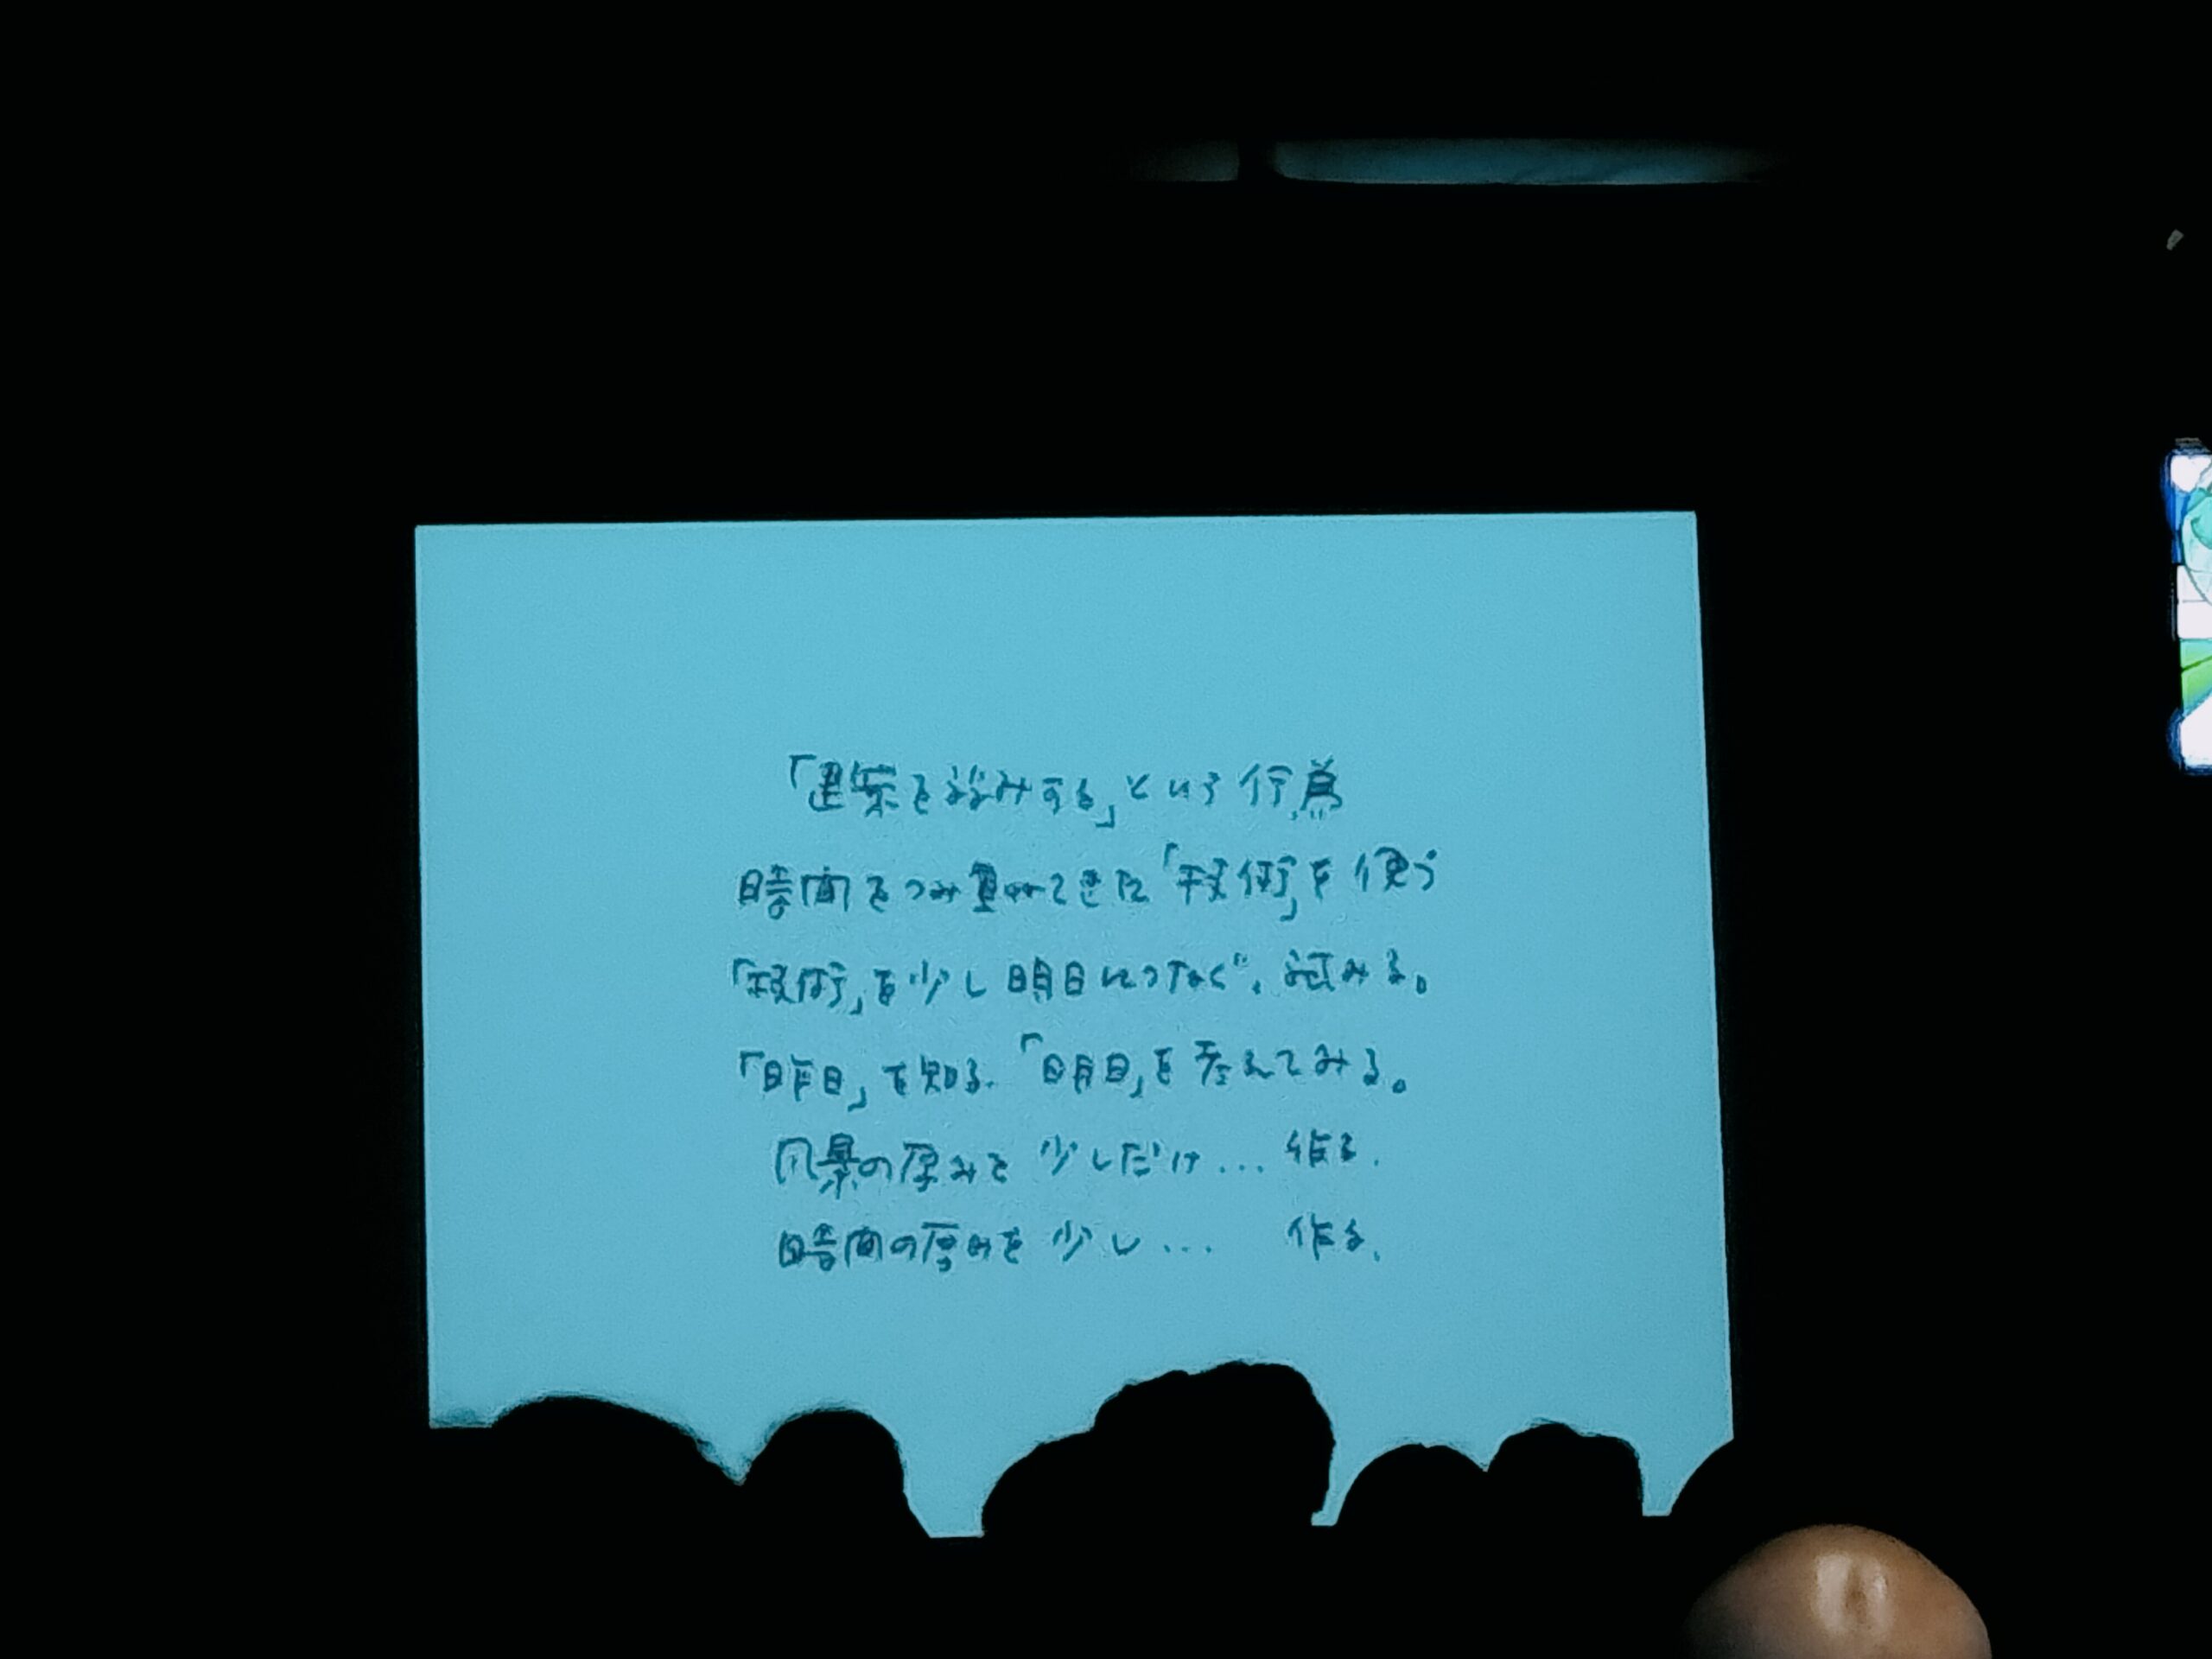 「建築を試みする」という行為
時間をつみ重ねてきた「技術」を使う
「技術」を少し明日につなぐ、試みる。
「昨日」を知る、「明日」を考えてみる。
風景の厚みを 少しだけ... 作る.
時間の厚みを 少し... 作る.